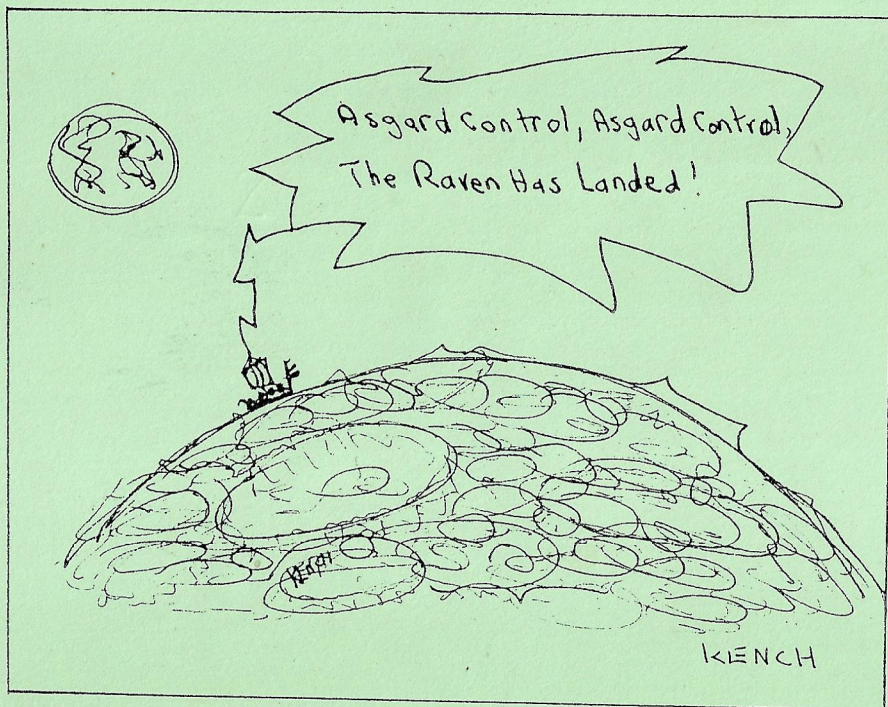 Asgard Control, Asgard Control,
The Raven Has Landed!
KENCH
KENCH